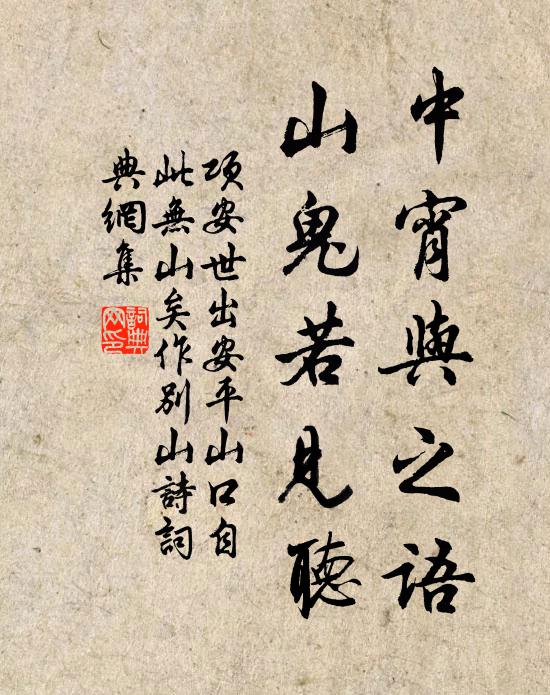 中宵與之語
山鬼若見聽
項安世出安平山口自
此無山矣作別山詩詞
典網集
詞典
网印